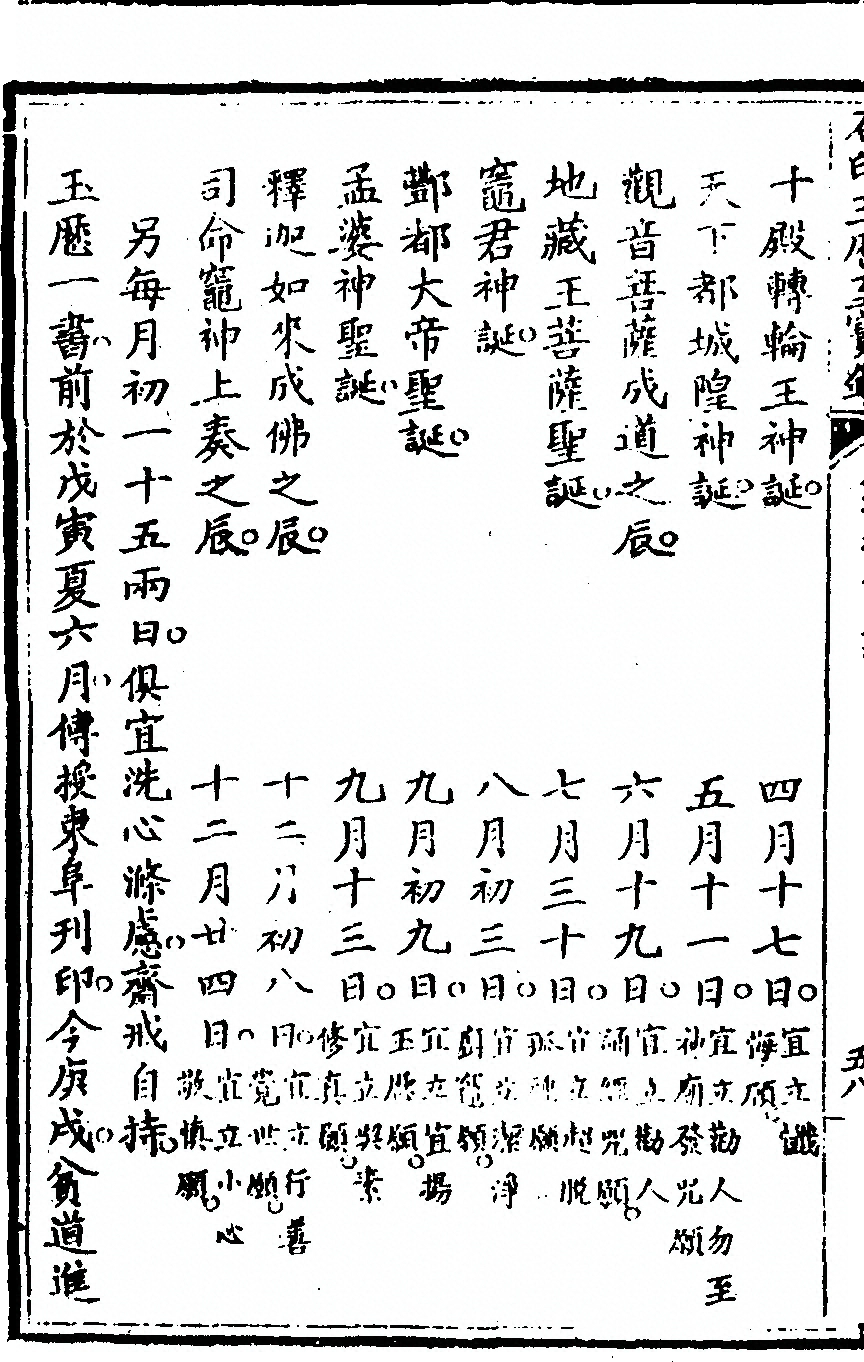 十殿轉輪王神誕。四月十七日。宜立懺悔願。
天下都城隍神誕。五月十一日。宜立勸人勿至神廟發咒願
觀音菩薩成道之辰。六月十九日。宜立勸人誦經咒願。
地藏王菩薩聖誕。七月三十日。宜立超脫孤魂願
竈君神誕。八月初三日。宜立潔淨廚竈願。
酆都大帝聖誕。九月初九日。宜立宣揚玉歷願。
孟婆神聖誕。九月十三日。宜立與素修真願。
釋迦如來成佛之辰。十二月初八日。宜立行善覺世願。
司命竈神上奏之辰。十二月廿四日。宜立小心敬慎願。
另每月初一十五兩日。俱宜洗心滌慮。齋戒自持。
玉歷一書。前於戊寅夏六月。傳授東阜刊印。今庚戌。貧道進
五八